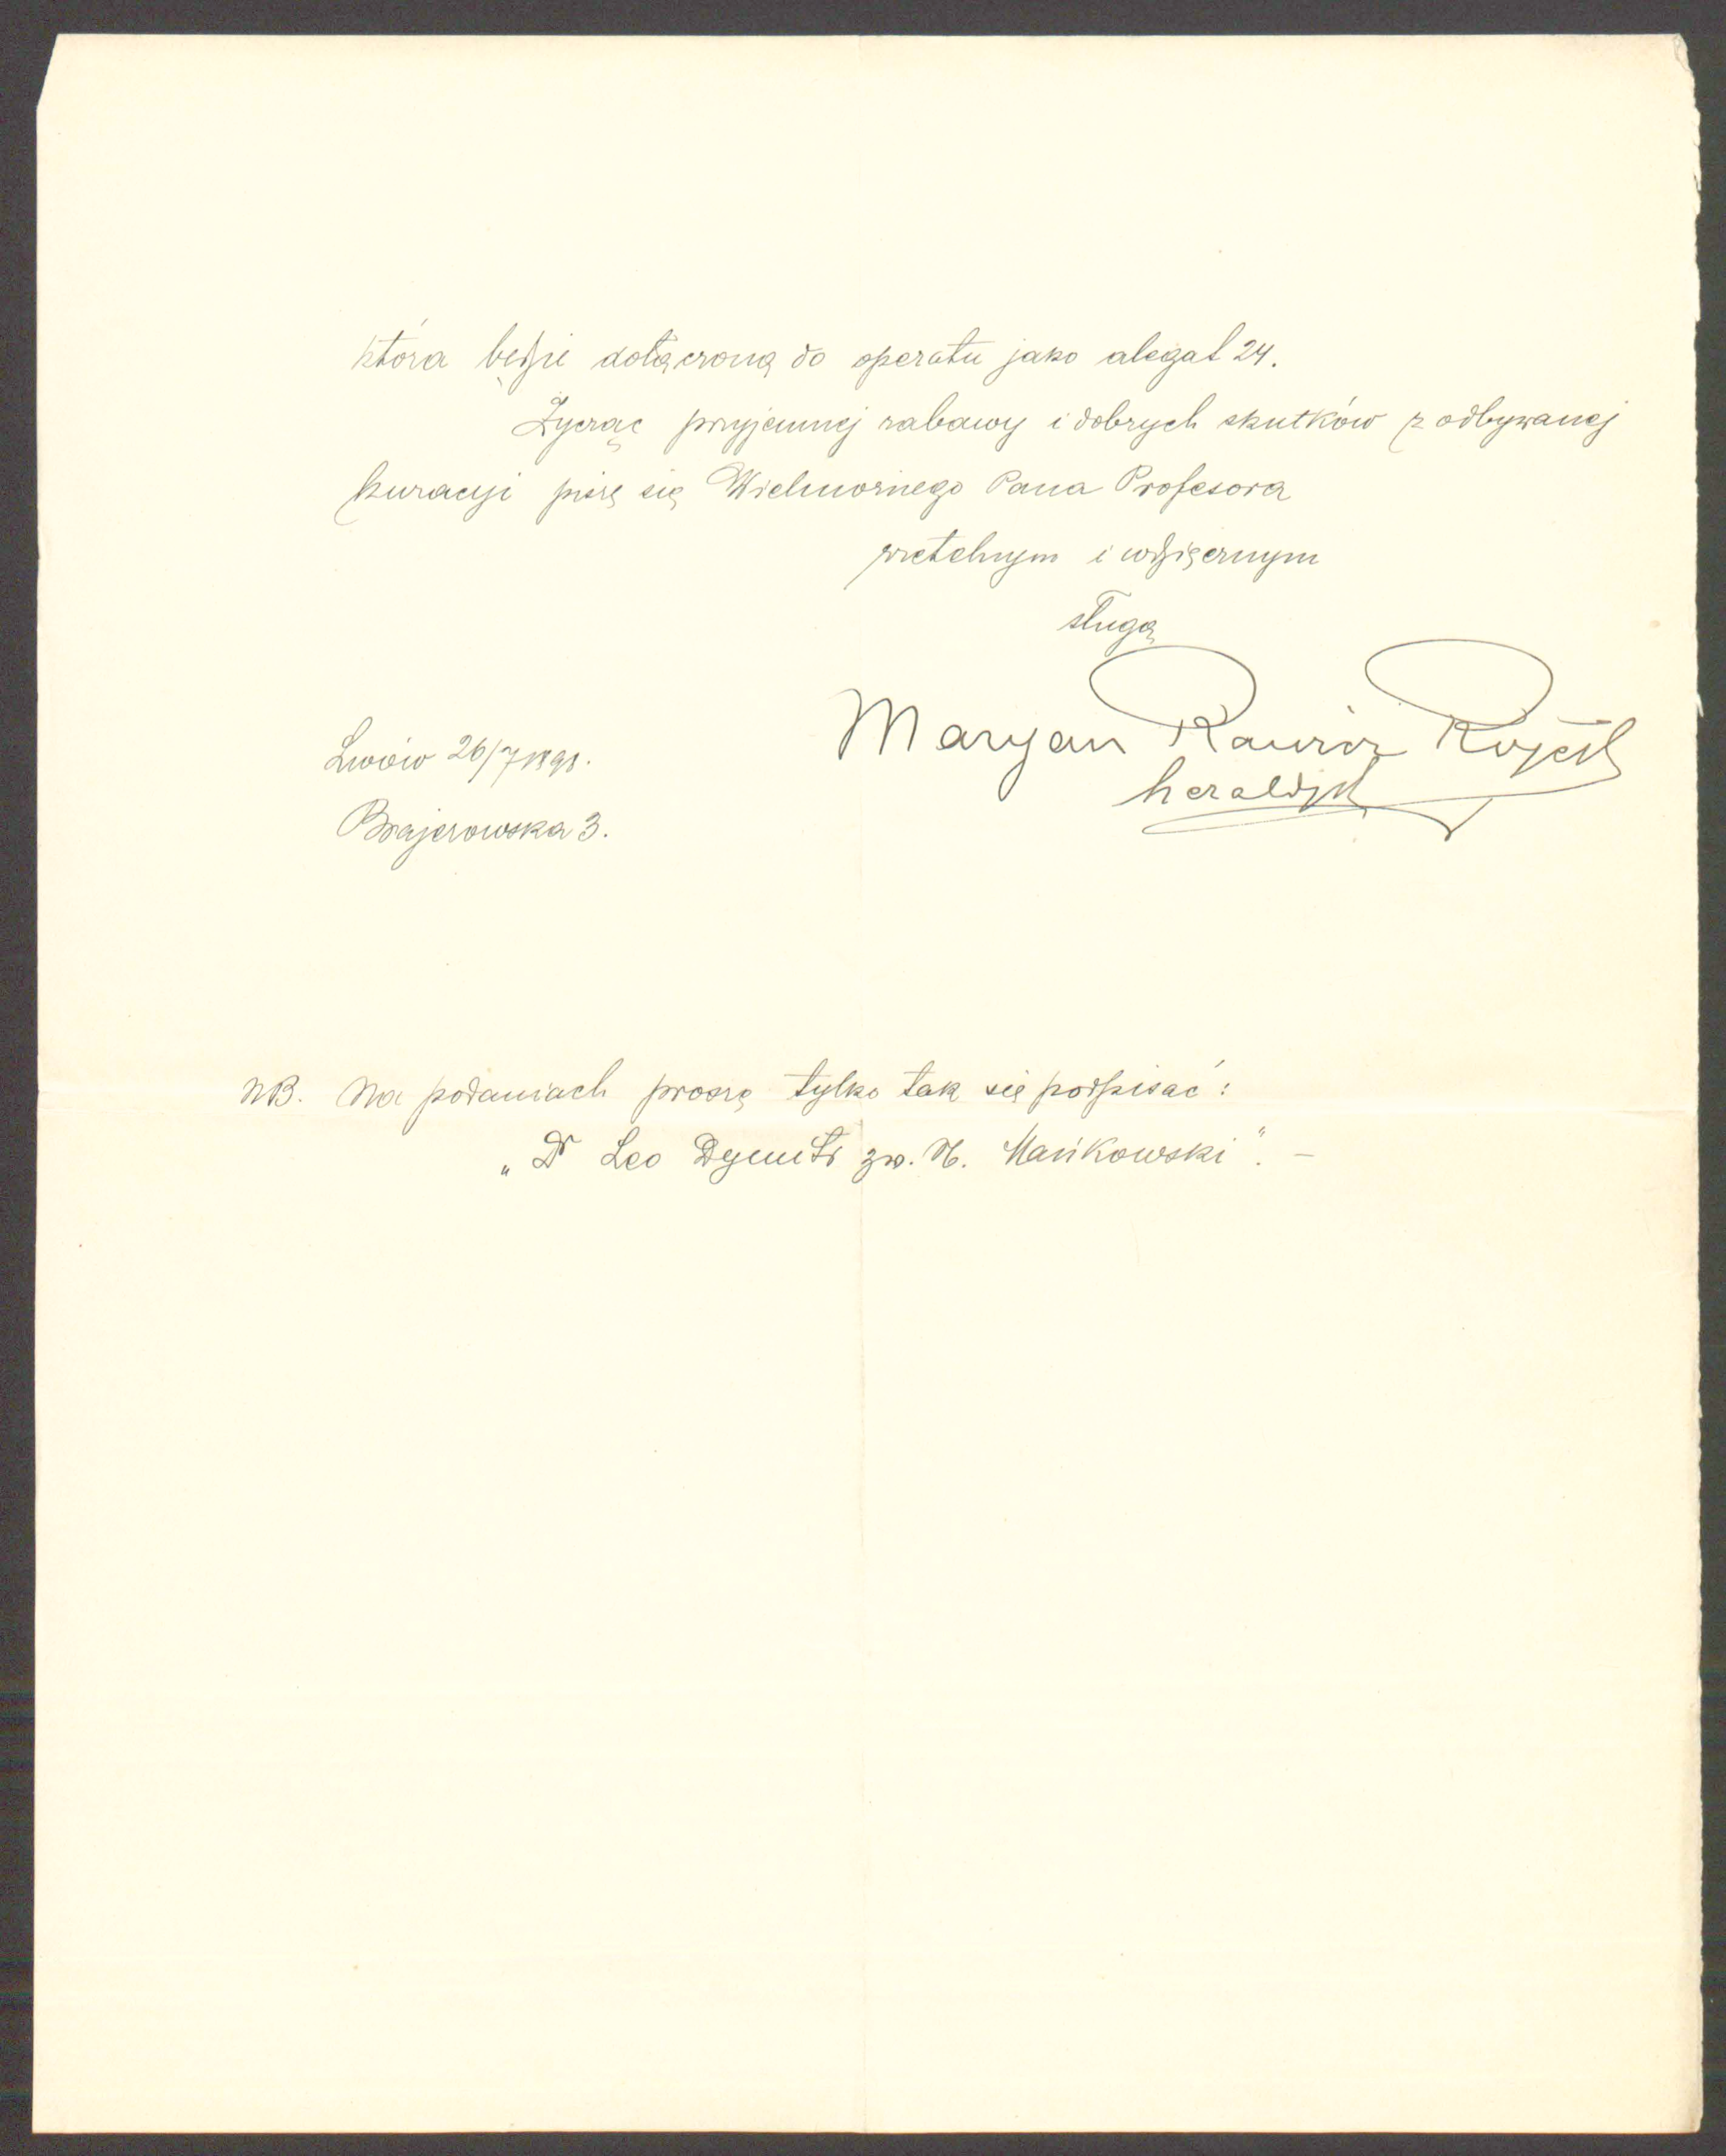 która będzie dołączoną do operatu jako alegat 24.
Życząc przyjemnej zabawy i dobrych skutków z odbywanej
kuracyi piszę się Wielmożnego Pana Profesora
rzetelnym i wdzięcznym
sługą
Maryan Rawicz
heraldyk
Lwów 26/7 1898.
Brajerowska 3.
NB. Na podaniach proszę tylko tak się podpisać:
„Dr Leo Dymitr zw. N. Mańkowski". –